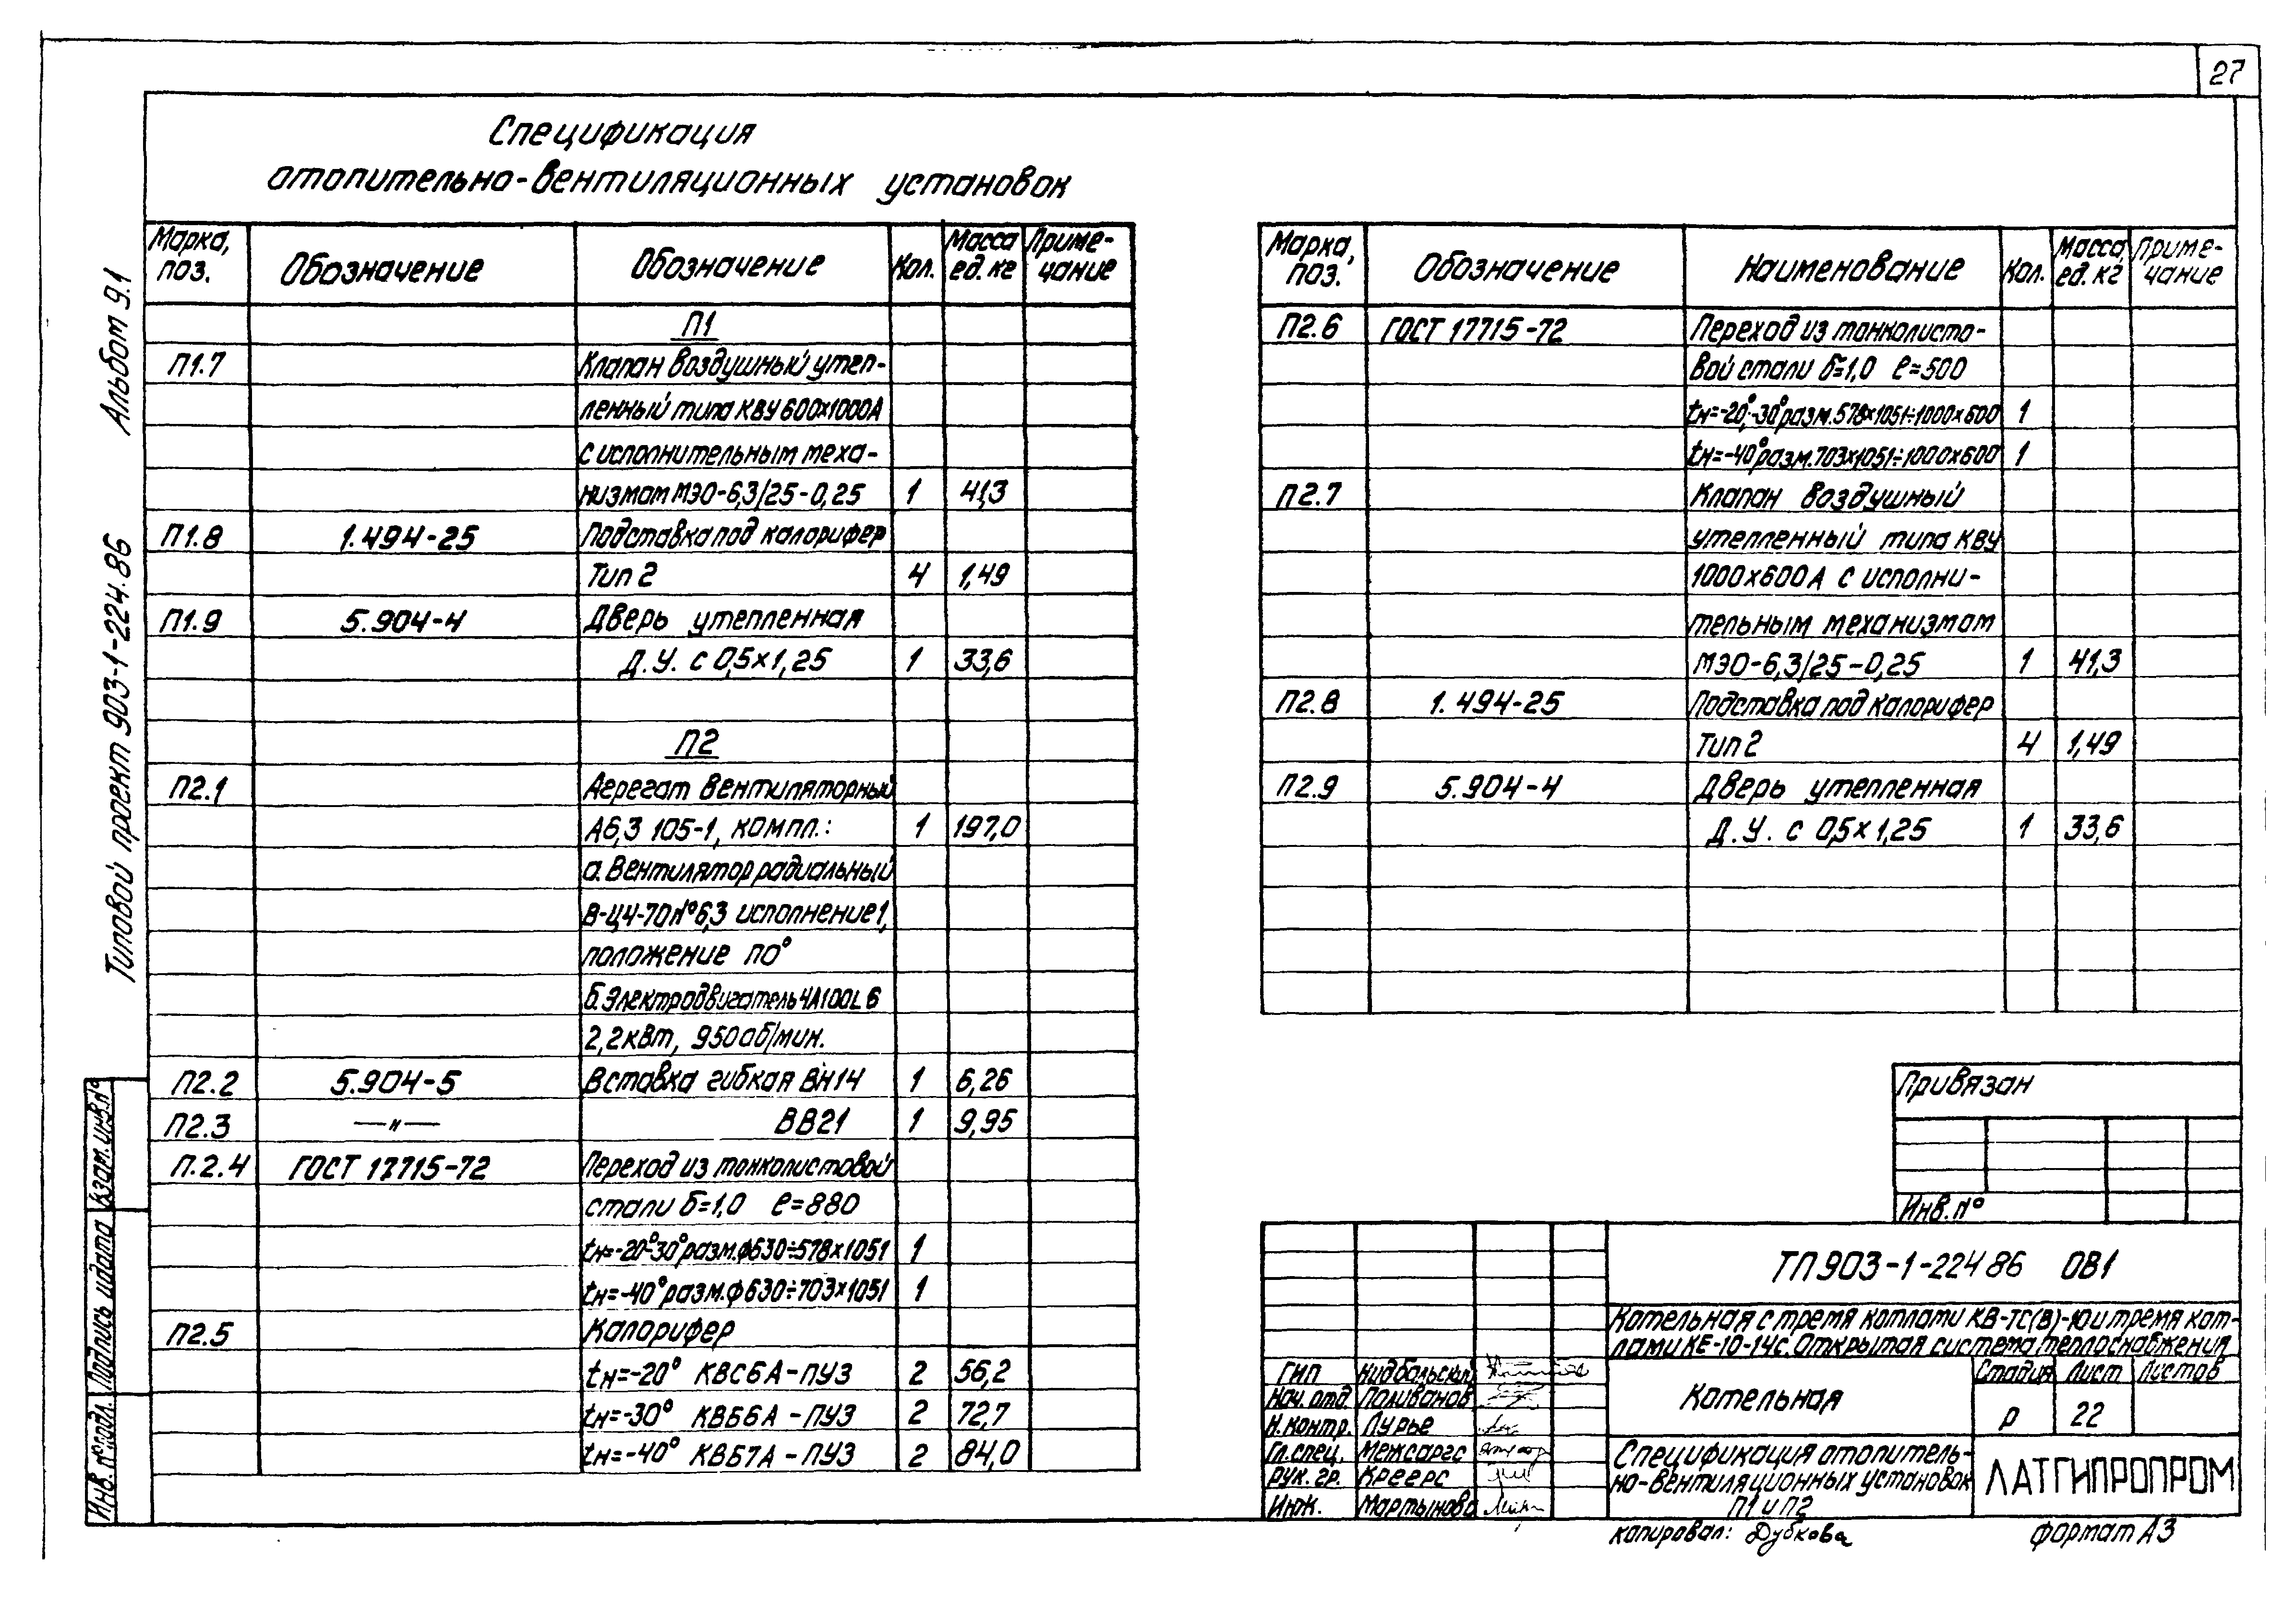 27
Спецификация
отопительно-вентиляционных установок
Альбом 9.1
Типовой проект 903-1-224.86
Марка, поз. Обозначение Обозначение Кол. Масса ед. кг Приме-чание
П1
П1.7 Клапан воздушный утеп-
ленный типа КВУ 600х1000А
с исполнительным меха-
низмом МЭО-6,3/25-0,25 1 41,3
П1.8 1.494-25 Подставка под калорифер
Тип 2 4 1,49
П1.9 5.904-4 Дверь утепленная
Д.У. с 0,5х1,25 1 33,6
П2
П2.1 Агрегат вентиляторный
А6,3 105-1, компл.: 1 197,0
а. Вентилятор радиальный
В-Ц4-70 №6,3 исполнение 1,
положение П0°
б. Электродвигатель 4А100L6
2,2 кВт, 950 об/мин.
П2.2 5.904-5 Вставка гибкая ВН14 1 6,26
П2.3 —"— ВВ21 1 9,95
П.2.4 ГОСТ 17715-72 Переход из тонколистовой
стали б=1,0 е=880
tн=-20°-30° разм. ф630÷578х1051 1
tн=-40° разм. ф630÷703х1051 1
П2.5 Калорифер
tн=-20° КВС6А-ПУЗ 2 56,2
tн=-30° КВБ6А-ПУЗ 2 72,7
tн=-40° КВБ7А-ПУЗ 2 84,0
Марка, поз. Обозначение Наименование Кол. Масса, ед. кг Приме-чание
П2.6 ГОСТ 17715-72 Переход из тонколисто-
вой стали б=1,0 е=500
tн=-20°,-30° разм. 578х1051÷1000х600 1
tн=-40° разм. 703х1051÷1000х600 1
П2.7 Клапан воздушный
утепленный типа КВУ
1000х600А с исполни-
тельным механизмом
МЭО-6,3/25-0,25 1 41,3
П2.8 1.494-25 Подставка под калорифер
Тип 2 4 1,49
П2.9 5.904-4 Дверь утепленная
Д.У. с 0,5х1,25 1 33,6
Привязан
Инв. №
ТП 903-1-224 86 ОВ1
Котельная с тремя котлами КВ-ТС(В)-10 и тремя кот-
лами КЕ-10-14с. Открытая система теплоснабжения
Котельная
Стадия Лист Листов
Р 22
Спецификация отопитель-
но-вентиляционных установок
П1 и П2
ЛАТГИПРОПРОМ
ГИП Нидбальский
Нач. отд. Поливанов
Н. контр. Лурье
Гл. спец. Межсаргс
Рук. гр. Креерс
Инж. Мартынова
копировал: Дубкова
формат А3
Взам. инв. №
Подпись и дата
Инв. № подл.